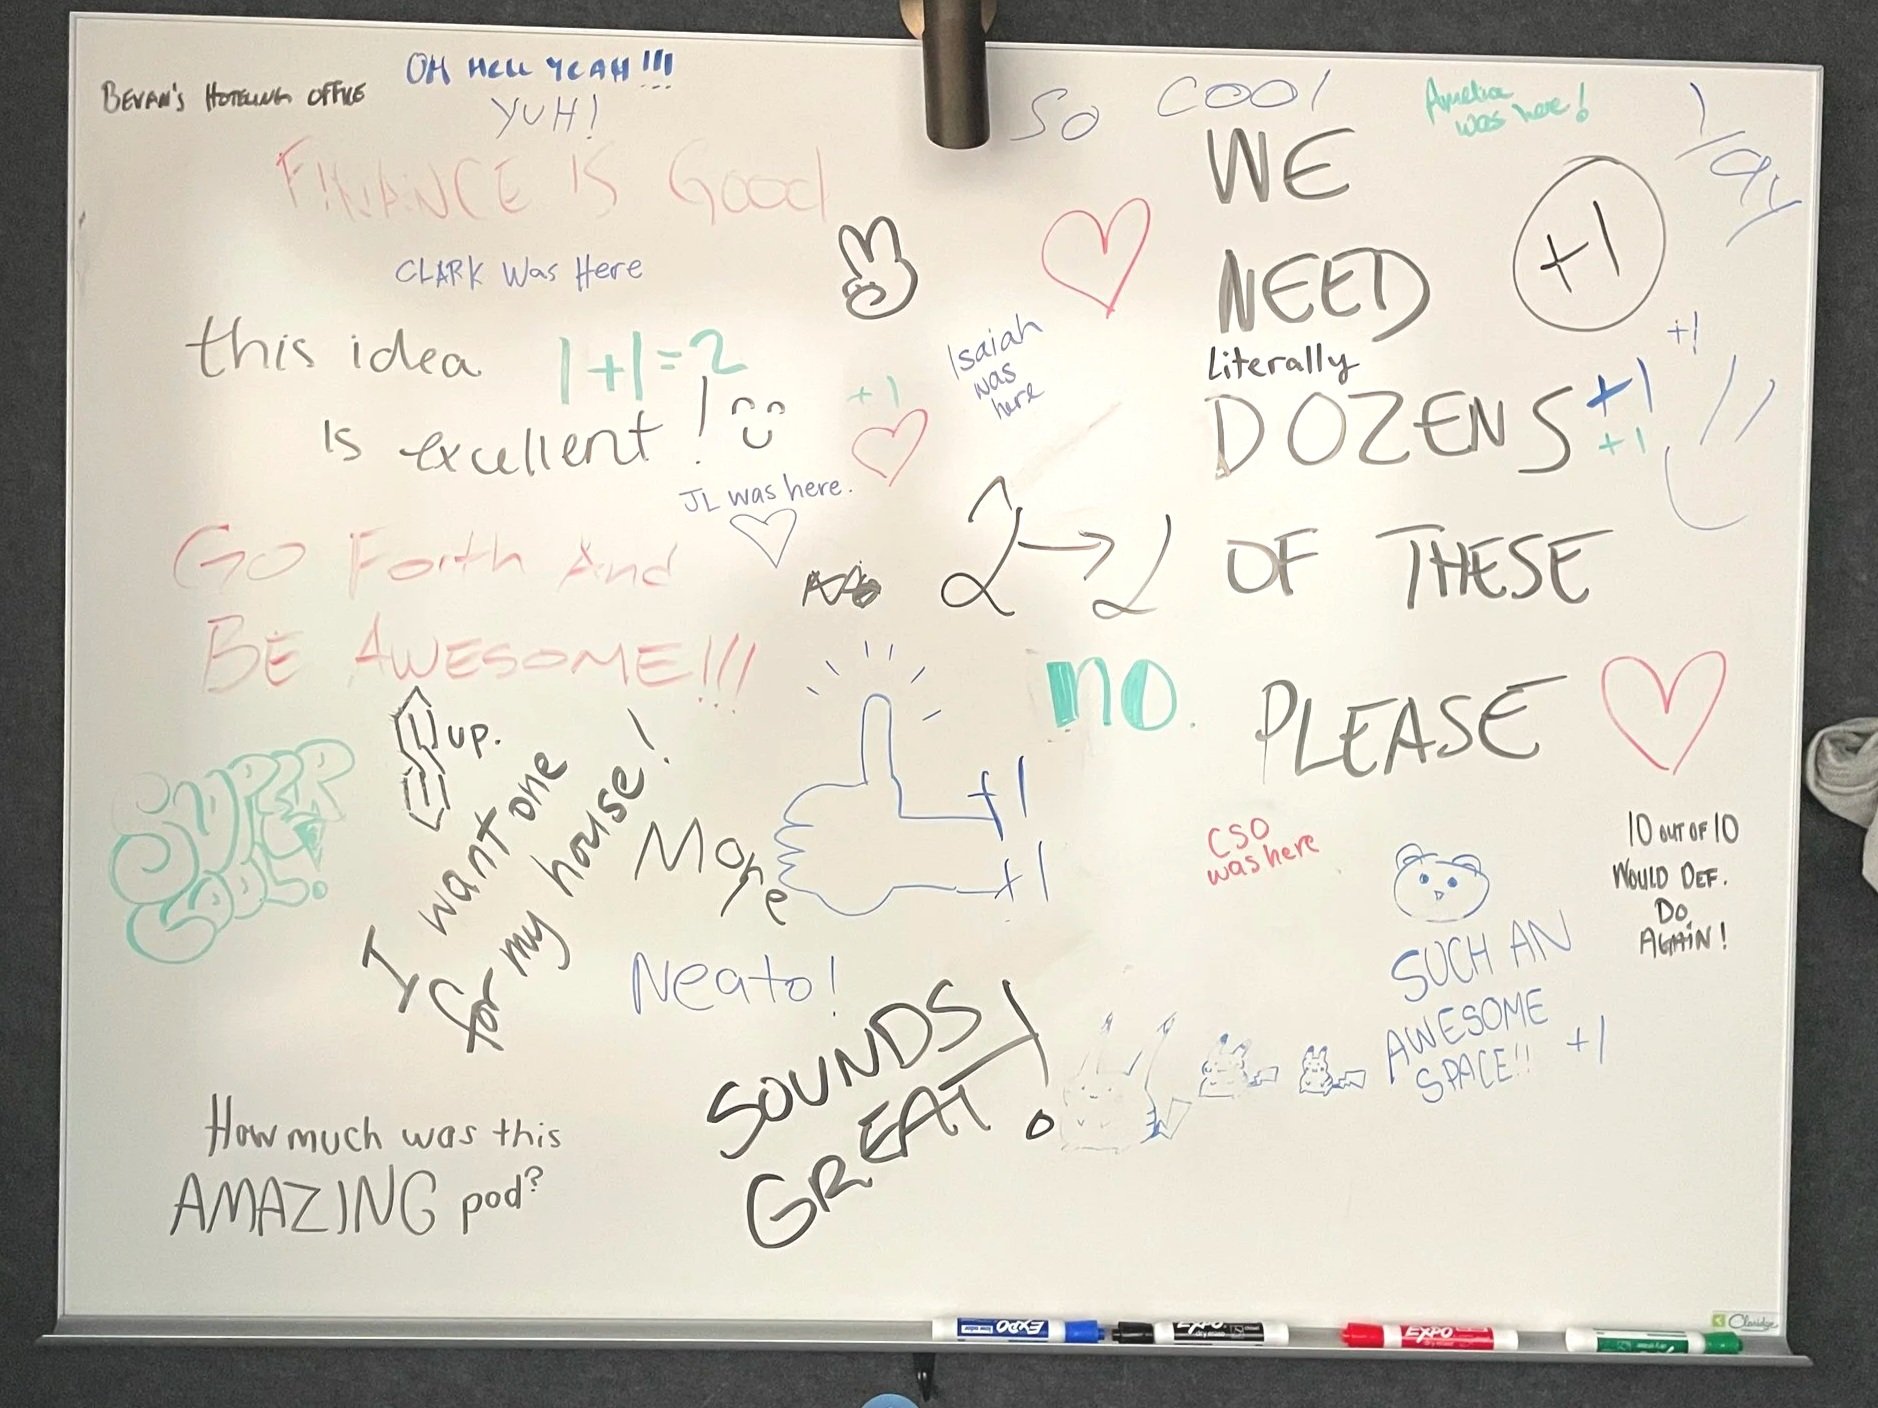 BEVAN'S HOTELING OFFICE
OH HELL YEAH!!!
YUH!
FINANCE IS GOOD
CLARK Was Here
this idea
1+1=2
is excellent!
+1
JL was here.
GO Forth And
BE AWESOME!!!
up.
SUPER
COOL!
I want one
for my house!
More
+1
+1
Neato!
SOUNDS
GREAT!
How much was this
AMAZING pod?
Isaiah
was
here
2→2
no.
SO COOL
Amelia
was here!
Yay
WE
NEED
+1
Literally
DOZENS
+1
+1
+1
OF THESE
PLEASE
CSO
was here
10 OUT OF 10
WOULD DEF.
DO
AGAIN!
SUCH AN
AWESOME
SPACE!!
+1
EXPO
low odor
EXPO
dry erase
EXPO
dry erase
Claridge